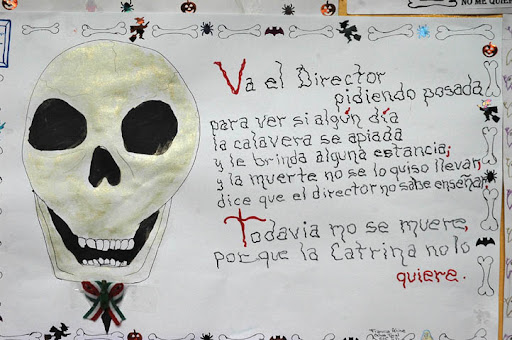 NO ME QUIER
Va el Director
pidiendo posada
para ver si algún día
la calavera se apiada
y le brinda alguna estancia;
y la muerte no se lo quiso llevar
dice que el director no sabe enseñar.
Todavia no se muere,
por que la Catrina no lo
quiere.